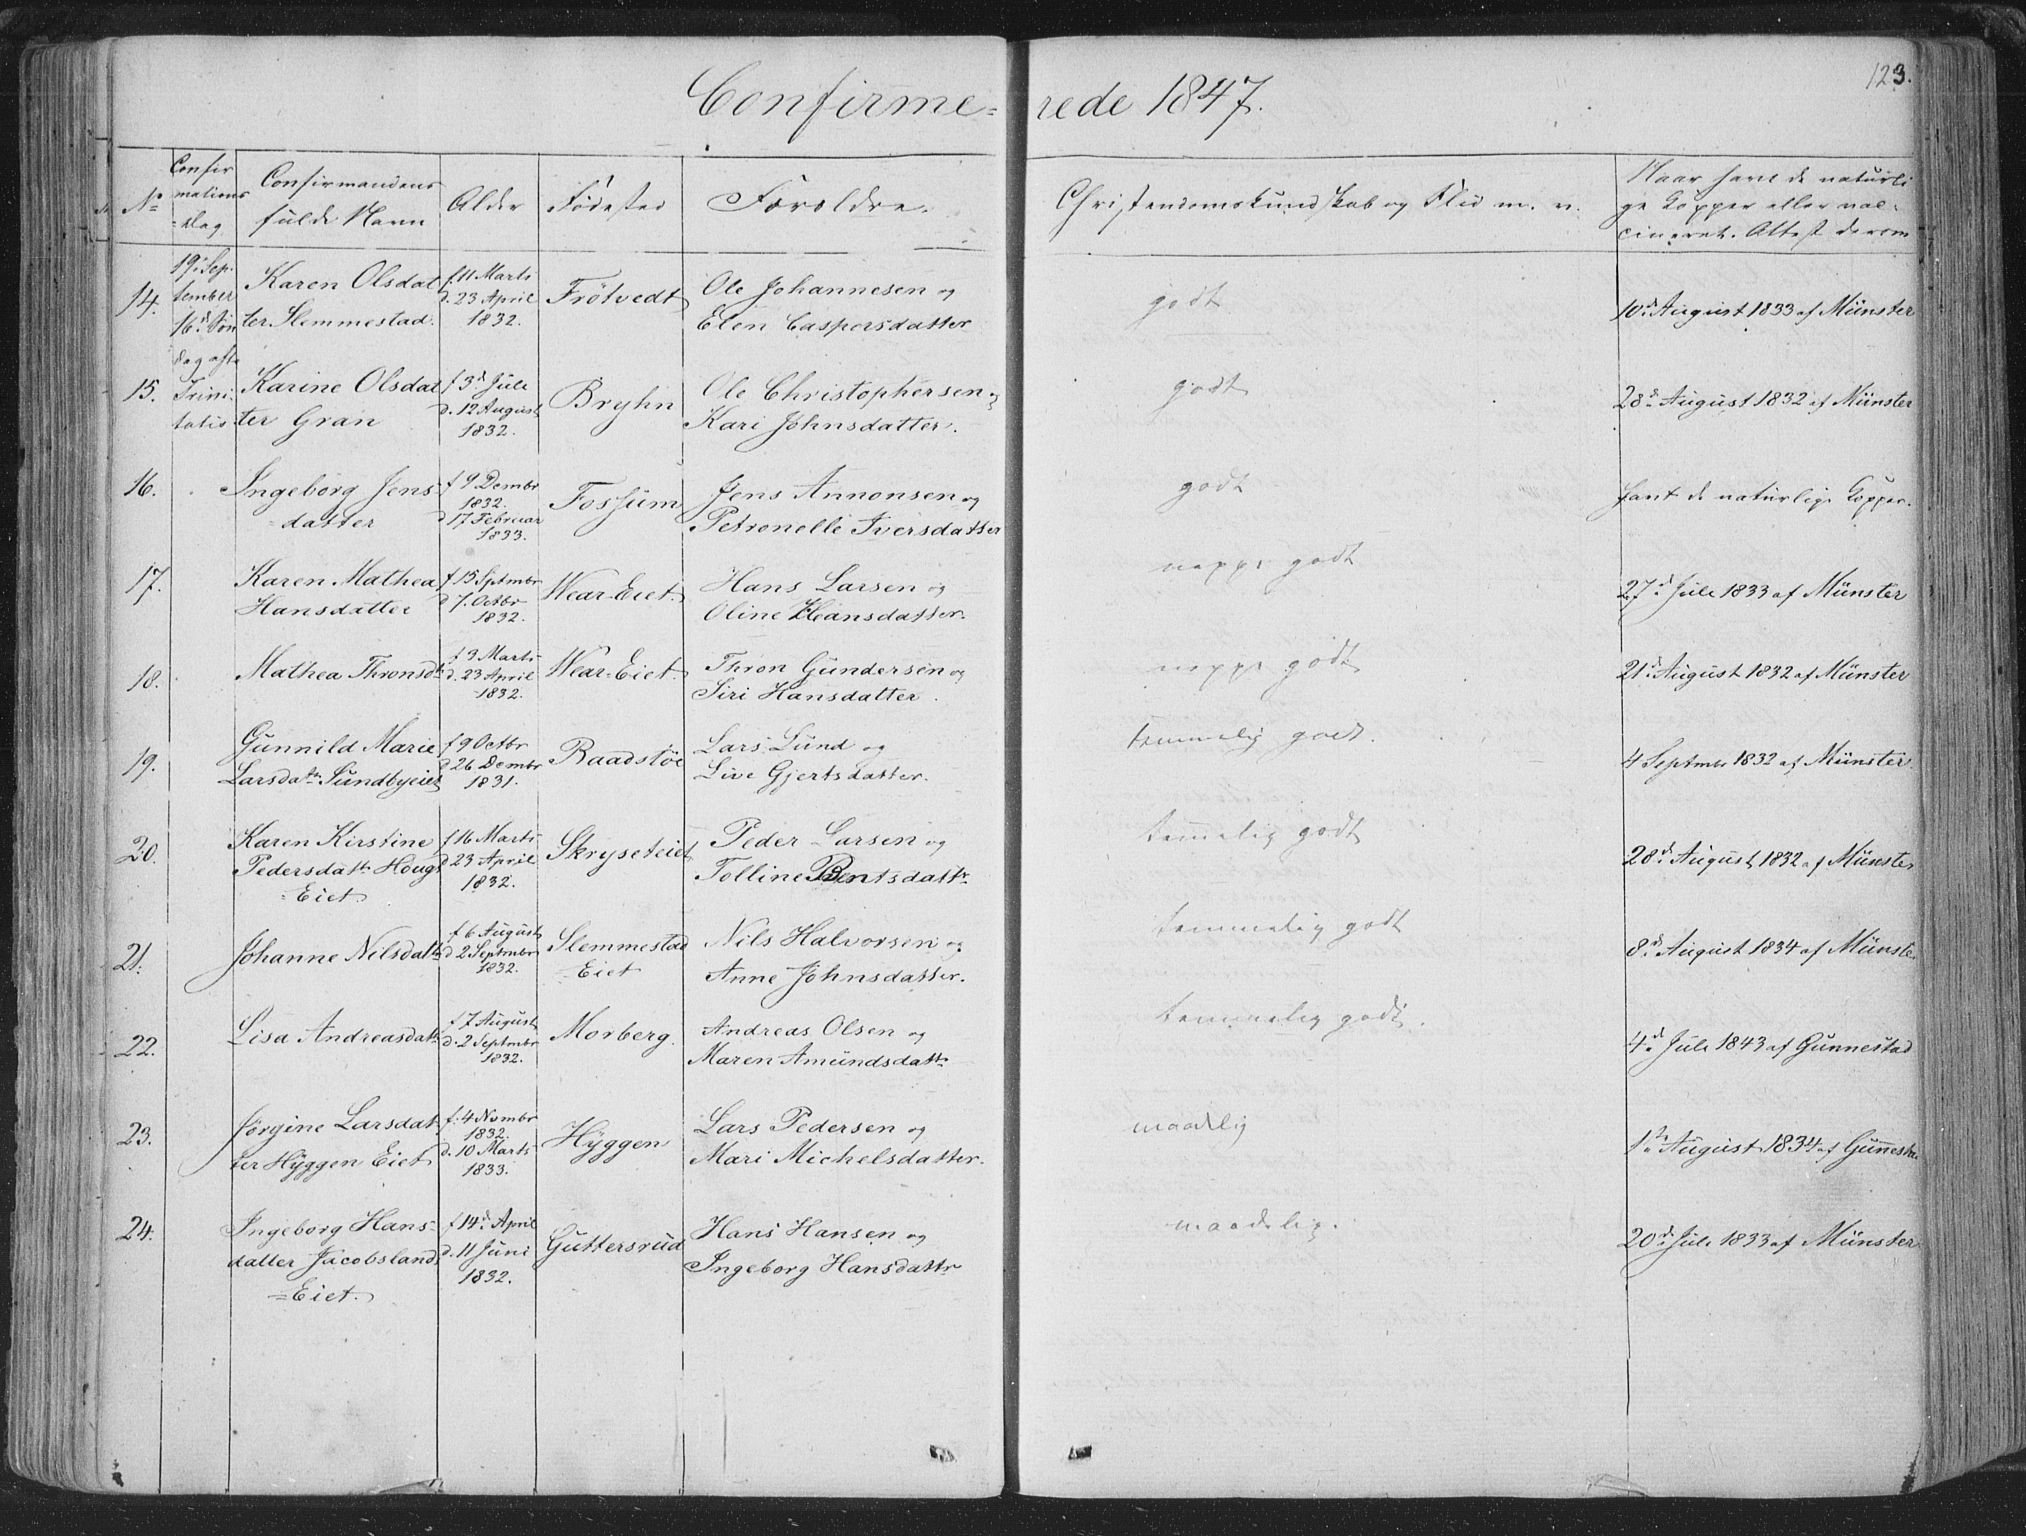 Confirme=rede 1847.
123.
No
Confir
mations
=dag
Confirmandens
fulde Navn
Alder
Fødested
Forældre.
Christendomskundskab og Flid m. v.
Naar havt de naturli
ge Kopper eller vac-
cineret. Attest derom
14.
19. Sep-
tember
16d Søn
dag efter
Trini-
tatis
Karen Olsdat
ter Slemmestad.
f. 11 Marts
d. 23 April
1832.
Frötvedt
Ole Johannesen og
Elen Caspersdatter
godt
10d August 1833 af Münster
15.
Karine Olsdat
ter Gran
f 3d Juli
d. 12 August
1832.
Bryhn
Ole Christophersen og
Kari Johnsdatter.
godt
28d August 1832 af Münster
16.
Ingeborg Jens
datter
f 9 Dembr
1832.
d 17 Februar
1833.
Fossum
Jens Annonsen og
Petronelle Iversdatter
godt
havt de naturlige Kopper.
17.
Karen Mathea
Hansdatter
f 15 Septmbr
d 7. Octbr
1832.
Wear-Eiet.
Hans Larsen og
Oline Hansdatter.
neppe godt
27d Juli 1833 af Münster
18.
Mathea Thronsdt
f 3 Marts
d. 23 April
1832.
Wear-Eiet.
Thron Gundersen og
Siri Hansdatter.
neppe godt
21d August 1832 af Münster
19.
Gunnild Marie
Larsdatr Sundbyeiet
f 9 Octbr
d 26 Dembr
1831.
Raadstöe
Lars Lund og
Live Gjertsdatter.
temmelig godt.
4 Septmbr 1832 af Münster.
20.
Karen Kirstine
Pedersdatr Houg
=Eiet
f 16 Marts
d 23 April
1832.
Skryseteiet
Peder Larsen og
Tolline Bentsdattr
temmelig godt
28d August 1832 af Münster
21.
Johanne Nilsdattr
f 6 August
d 2 Septmbr
1832.
Slemmestad
=Eiet
Nils Halvorsen og
Anne Johnsdatter.
temmelig godt
8d August 1834 af Münster
22.
Lisa Andreasdattr
f 7 August
d. 2 Septmbr
1832.
Morberg.
Andreas Olsen og
Maren Amundsdattr
temmelig godt.
4d Juli 1843 af Gunnestad
23.
Jørgine Larsdat
ter Hyggen Eiet
f. 4 Nvmbr
1832.
d. 10 Marts
1833.
Hyggen
Lars Pedersen og
Mari Michelsdatter.
maadelig
1ste August 1834 af Gunnestad
24.
Ingeborg Hans-
datter Jacobsland
=Eiet.
f. 14d April
d. 11 Juni
1832.
Guttersrud
Hans Hansen og
Ingeborg Hansdattr
maadelig.
20d Juli 1833 af Münster